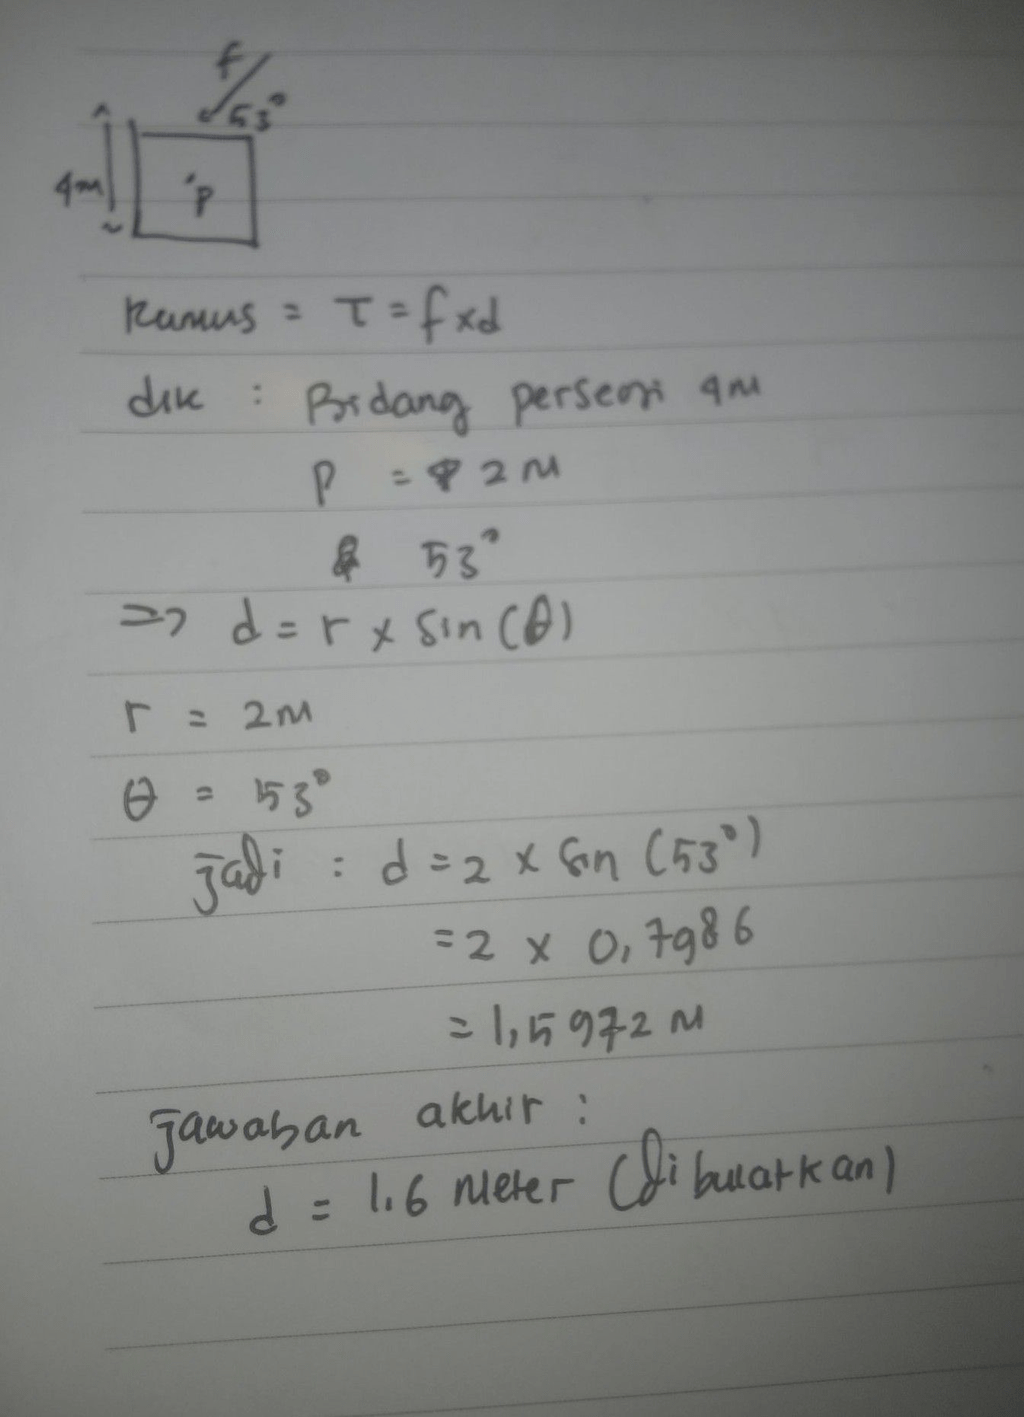 f
53°
4m
P
Rumus = τ = f x d
dik : Bidang persegi 4M
P = 2 M
53°
=> d = r x sin (θ)
r = 2M
θ = 53°
jadi : d = 2 x sin (53°)
= 2 x 0,7986
= 1,5972 M
jawaban akhir :
d = 1.6 Meter (dibulatkan)